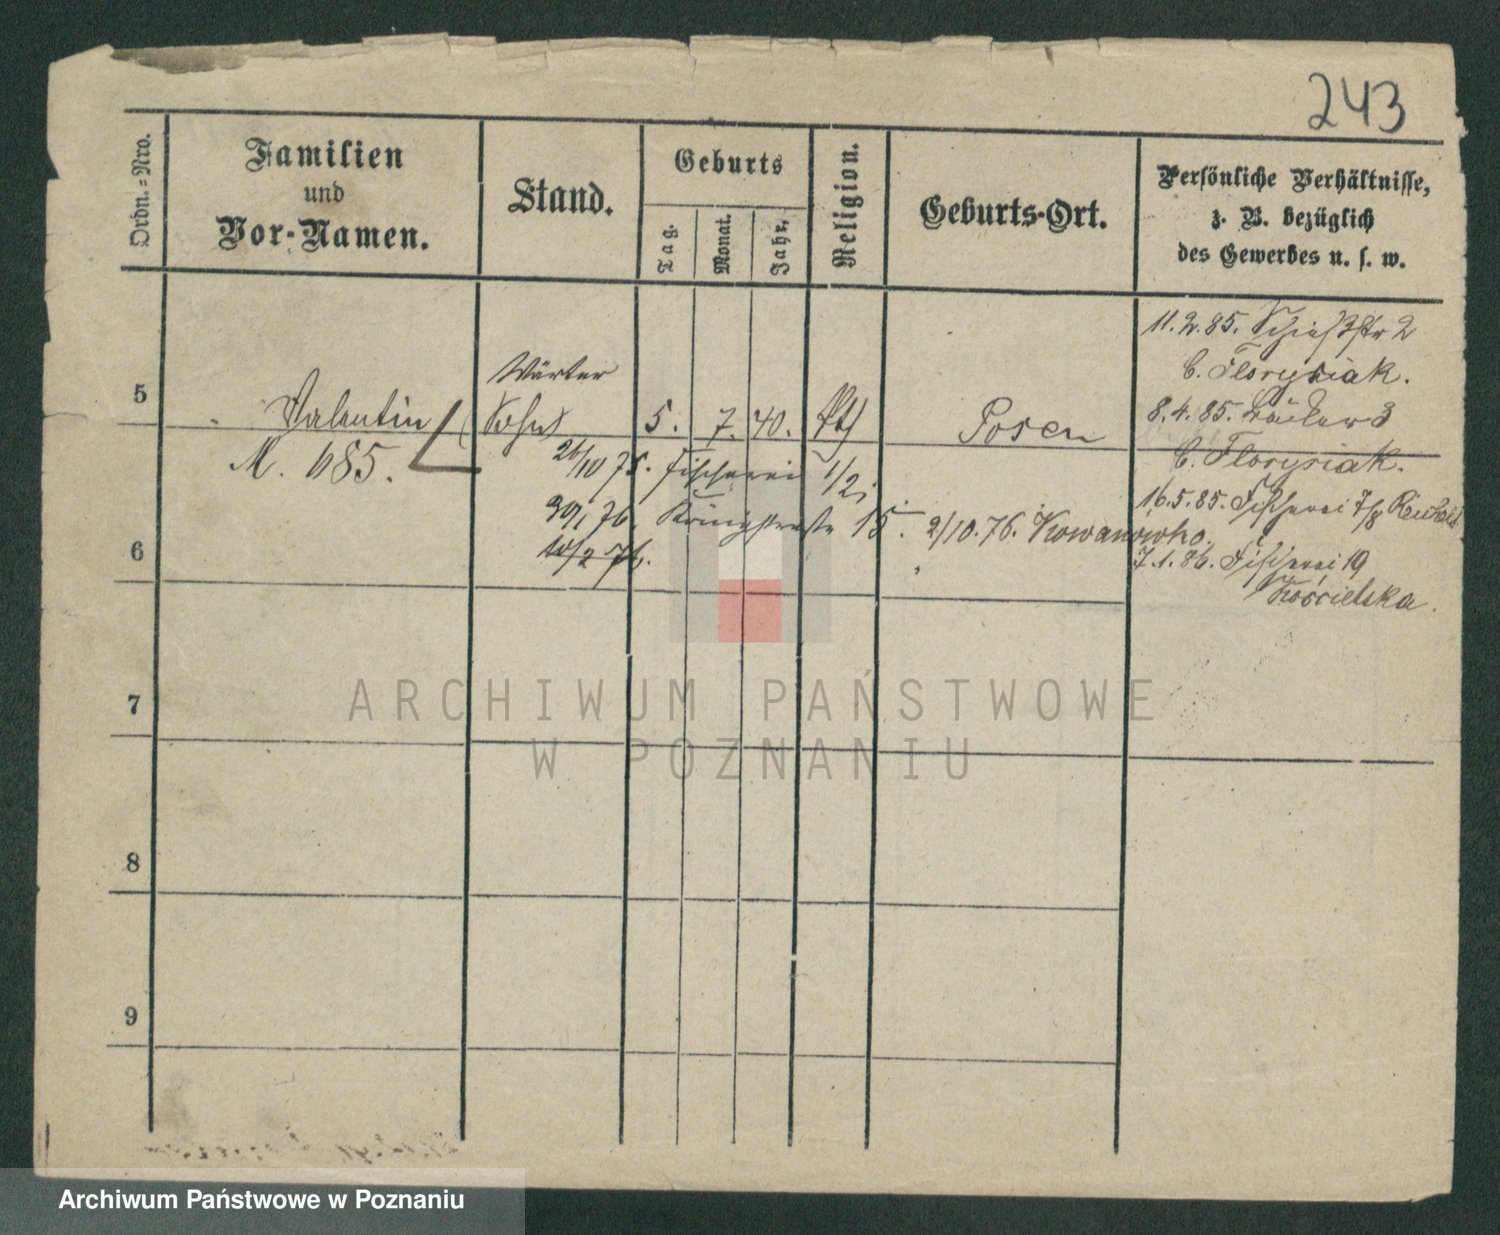 243
Ordn.-Nro.
Familien
und
Vor-Namen.
Stand.
Geburts
Tag.
Monat.
Jahr,
Religion.
Geburts-Ort.
Persönliche Verhältnisse,
z. B. bezüglich
des Gewerbes u. s. w.
11. 2. 85. Schießstr 2
C. Florysiak.
5
Valentin
Wärter
Sohn
5. 7. 40.
Posen
8. 4. 85. 3
C. Florysiak.
M. 685.
26/10 75. Fischerei 1/2
16. 5. 85. Fischerei 7/8
30/1 76. Königstraße 15.
2/10. 76. Kowanowko.
6
10/2 76.
7. 1. 86. Fischerei 19
Kościelska.
7
8
9
ARCHIWUM PAŃSTWOWE
W POZNANIU
Archiwum Państwowe w Poznaniu